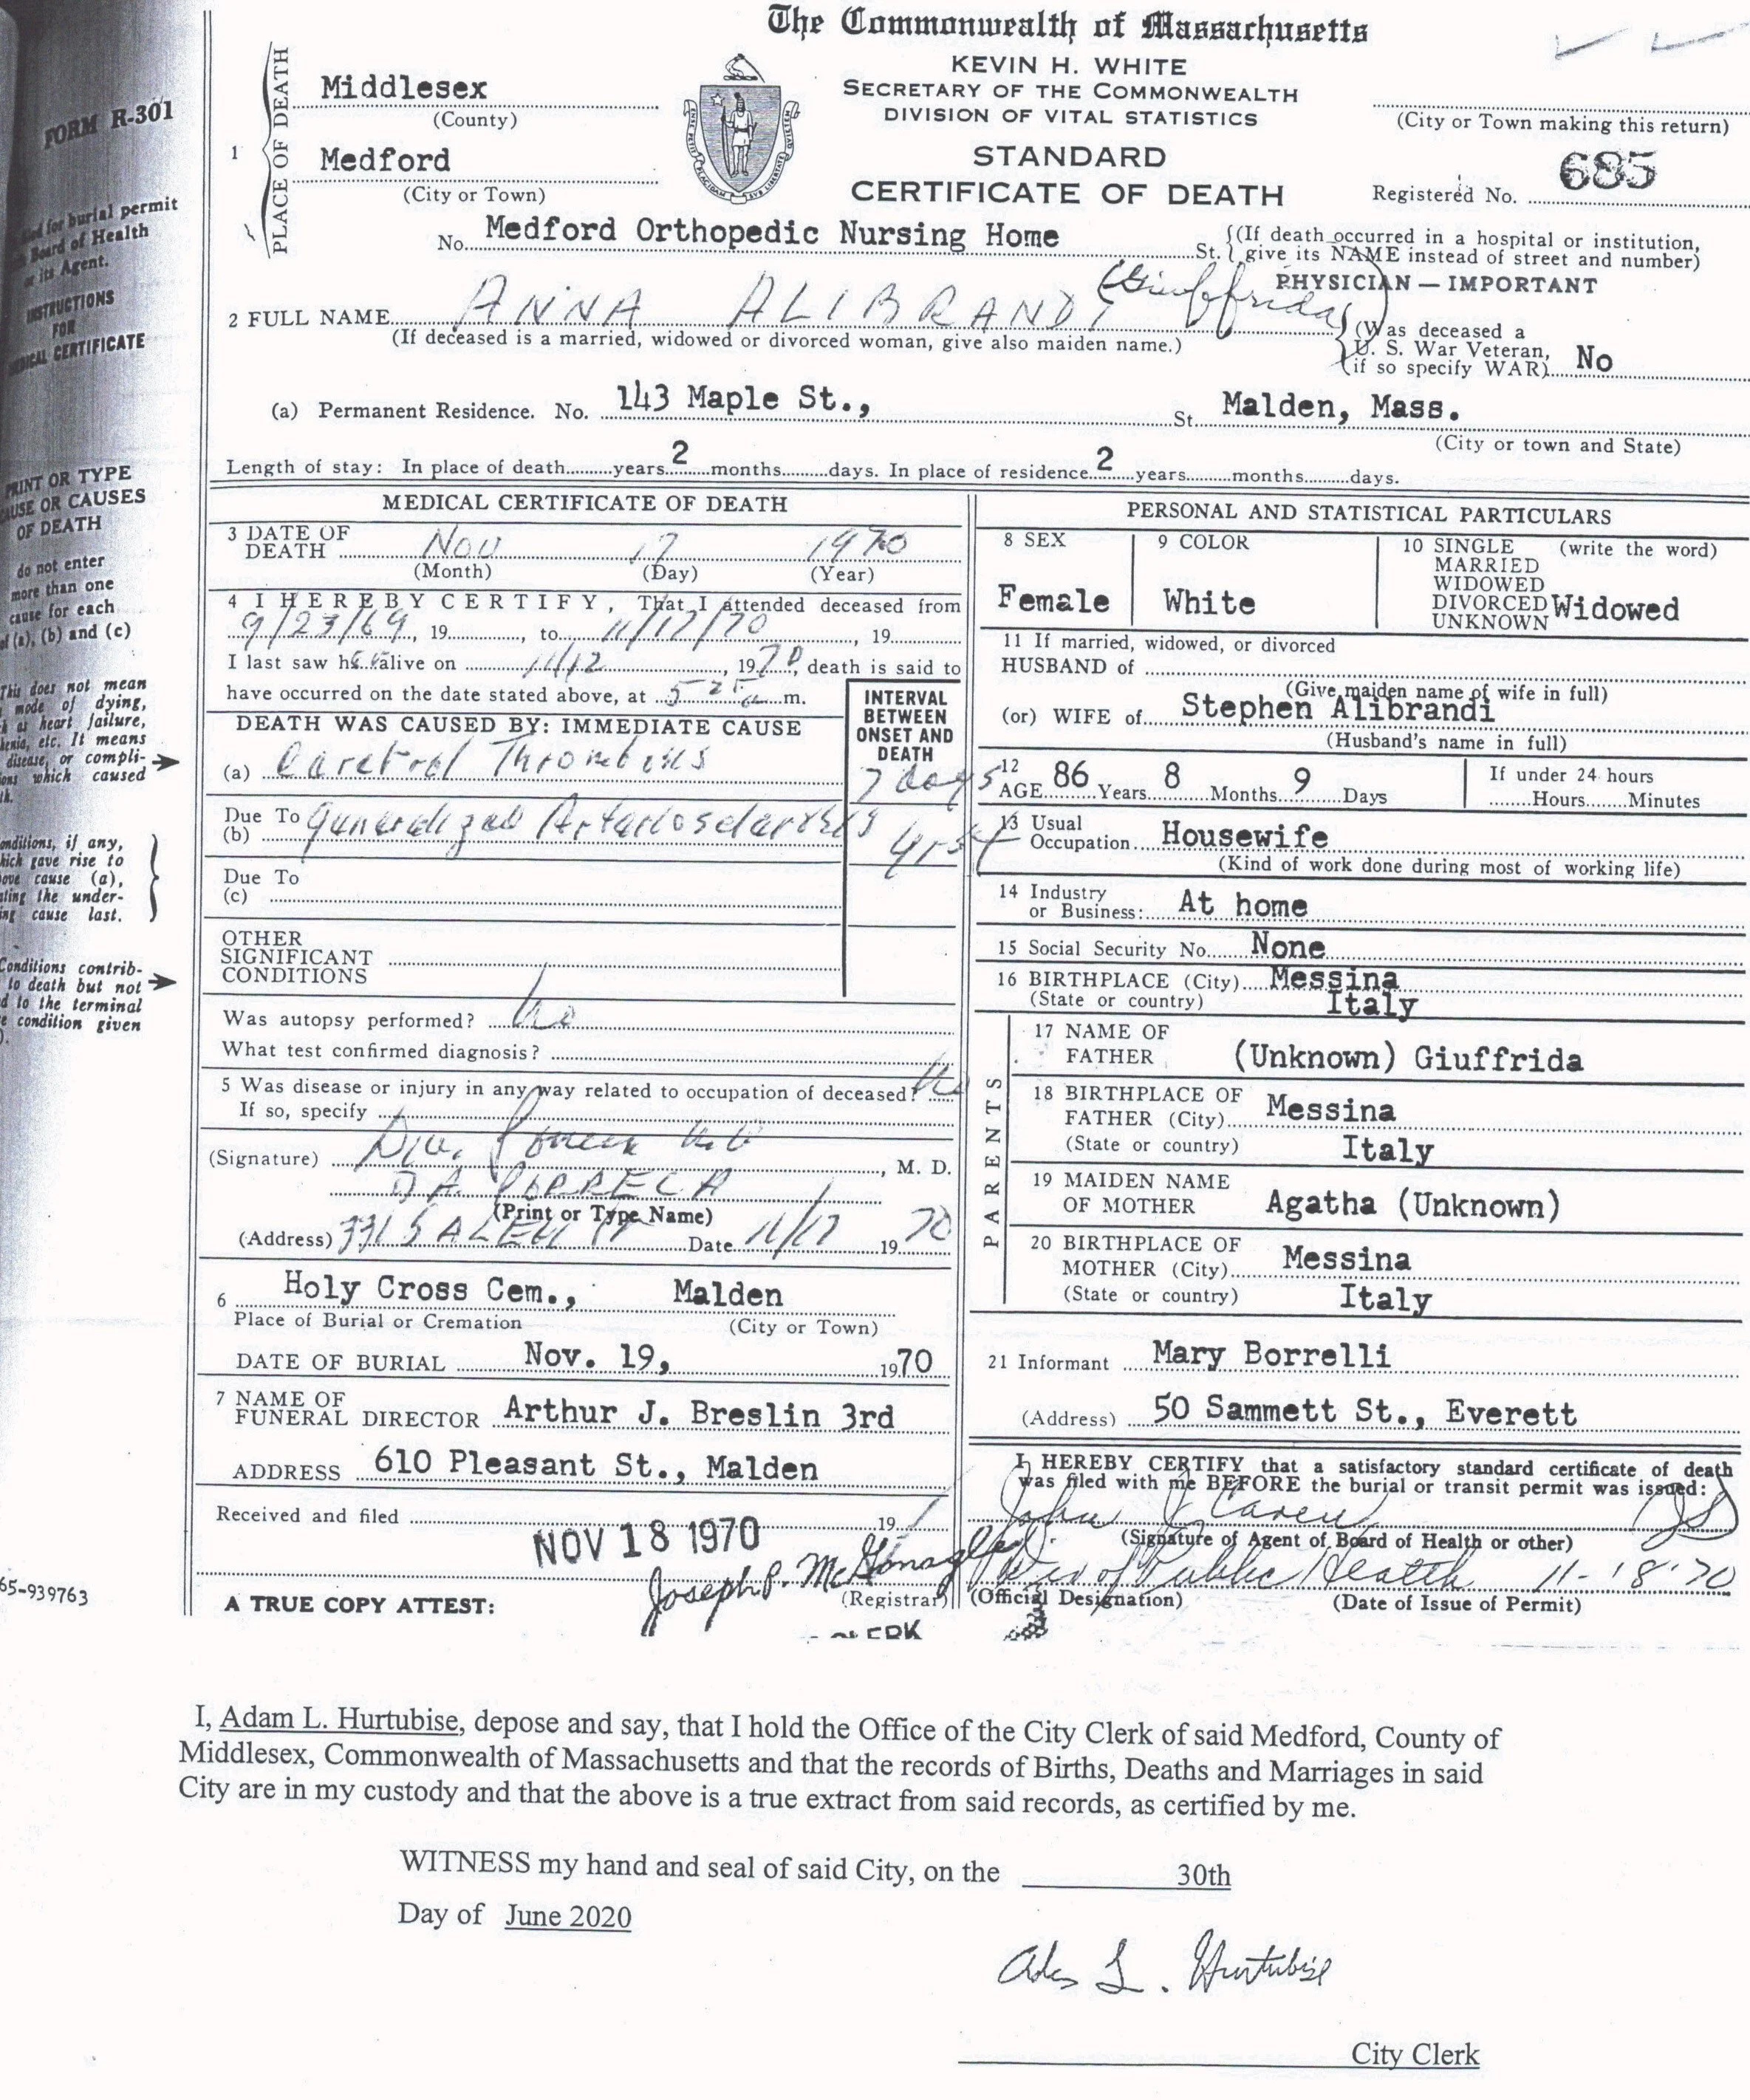 The Commonwealth of Massachusetts
KEVIN H. WHITE
SECRETARY OF THE COMMONWEALTH
DIVISION OF VITAL STATISTICS
STANDARD
CERTIFICATE OF DEATH
FORM R-301
for burial permit
Board of Health
or its Agent.
INSTRUCTIONS
FOR
CERTIFICATE
PRINT OR TYPE
CAUSE OR CAUSES
OF DEATH
do not enter
more than one
cause for each
of (a), (b) and (c)
This does not mean
mode of dying,
as heart failure,
etc. It means
disease, or compli-
which caused
conditions, if any,
which gave rise to
cause (a),
the under-
cause last.
Conditions contrib-
to death but not
to the terminal
condition given
65-939763
1 PLACE OF DEATH
Middlesex
(County)
Medford
(City or Town)
(City or Town making this return)
Registered No. 685
No. Medford Orthopedic Nursing Home St. (If death occurred in a hospital or institution, give its NAME instead of street and number)
PHYSICIAN — IMPORTANT
2 FULL NAME ANNA ALIBRANDI (Giuffrida)
(If deceased is a married, widowed or divorced woman, give also maiden name.)
(Was deceased a
U. S. War Veteran,
if so specify WAR) No
(a) Permanent Residence. No. 143 Maple St., St. Malden, Mass.
(City or town and State)
Length of stay: In place of death years 2 months days. In place of residence 2 years months days.
MEDICAL CERTIFICATE OF DEATH
3 DATE OF
DEATH Nov 17 1970
(Month) (Day) (Year)
4 I HEREBY CERTIFY, That I attended deceased from
9/23/69, 19 , to 11/17/70, 19
I last saw her alive on 11/12, 1970, death is said to
have occurred on the date stated above, at m.
INTERVAL
BETWEEN
ONSET AND
DEATH
DEATH WAS CAUSED BY: IMMEDIATE CAUSE
(a) Cerebral Thrombosis 7 days
Due To
(b) Generalized Arteriosclerosis yrs
Due To
(c)
OTHER
SIGNIFICANT
CONDITIONS
Was autopsy performed? No
What test confirmed diagnosis?
5 Was disease or injury in any way related to occupation of deceased? No
If so, specify
(Signature) , M. D.
D.A. PORRECA
(Print or Type Name)
(Address) 331 SALEM ST Date 11/17 1970
6 Holy Cross Cem., Malden
Place of Burial or Cremation (City or Town)
DATE OF BURIAL Nov. 19, 1970
7 NAME OF
FUNERAL DIRECTOR Arthur J. Breslin 3rd
ADDRESS 610 Pleasant St., Malden
Received and filed 19
NOV 18 1970
Joseph P. McGonagle
(Registrar)
A TRUE COPY ATTEST:
CLERK
PERSONAL AND STATISTICAL PARTICULARS
8 SEX
Female
9 COLOR
White
10 SINGLE (write the word)
MARRIED
WIDOWED
DIVORCED
UNKNOWN
Widowed
11 If married, widowed, or divorced
HUSBAND of
(Give maiden name of wife in full)
(or) WIFE of Stephen Alibrandi
(Husband's name in full)
12 AGE 86 Years 8 Months 9 Days
If under 24 hours
Hours Minutes
13 Usual
Occupation Housewife
(Kind of work done during most of working life)
14 Industry
or Business: At home
15 Social Security No. None
16 BIRTHPLACE (City) Messina
(State or country) Italy
PARENTS
17 NAME OF
FATHER (Unknown) Giuffrida
18 BIRTHPLACE OF
FATHER (City) Messina
(State or country) Italy
19 MAIDEN NAME
OF MOTHER Agatha (Unknown)
20 BIRTHPLACE OF
MOTHER (City) Messina
(State or country) Italy
21 Informant Mary Borrelli
(Address) 50 Sammett St., Everett
I HEREBY CERTIFY that a satisfactory standard certificate of death
was filed with me BEFORE the burial or transit permit was issued:
John J
(Signature of Agent of Board of Health or other)
Dir of Public Health 11-18-70
(Official Designation) (Date of Issue of Permit)
I, Adam L. Hurtubise, depose and say, that I hold the Office of the City Clerk of said Medford, County of
Middlesex, Commonwealth of Massachusetts and that the records of Births, Deaths and Marriages in said
City are in my custody and that the above is a true extract from said records, as certified by me.
WITNESS my hand and seal of said City, on the 30th
Day of June 2020
Adam L. Hurtubise
City Clerk